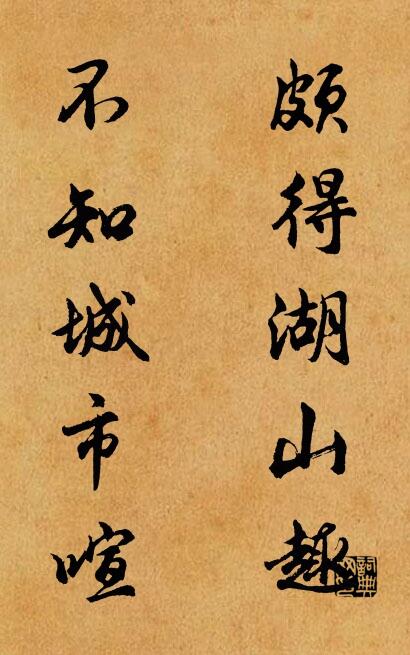 颇得湖山趣
不知城市喧